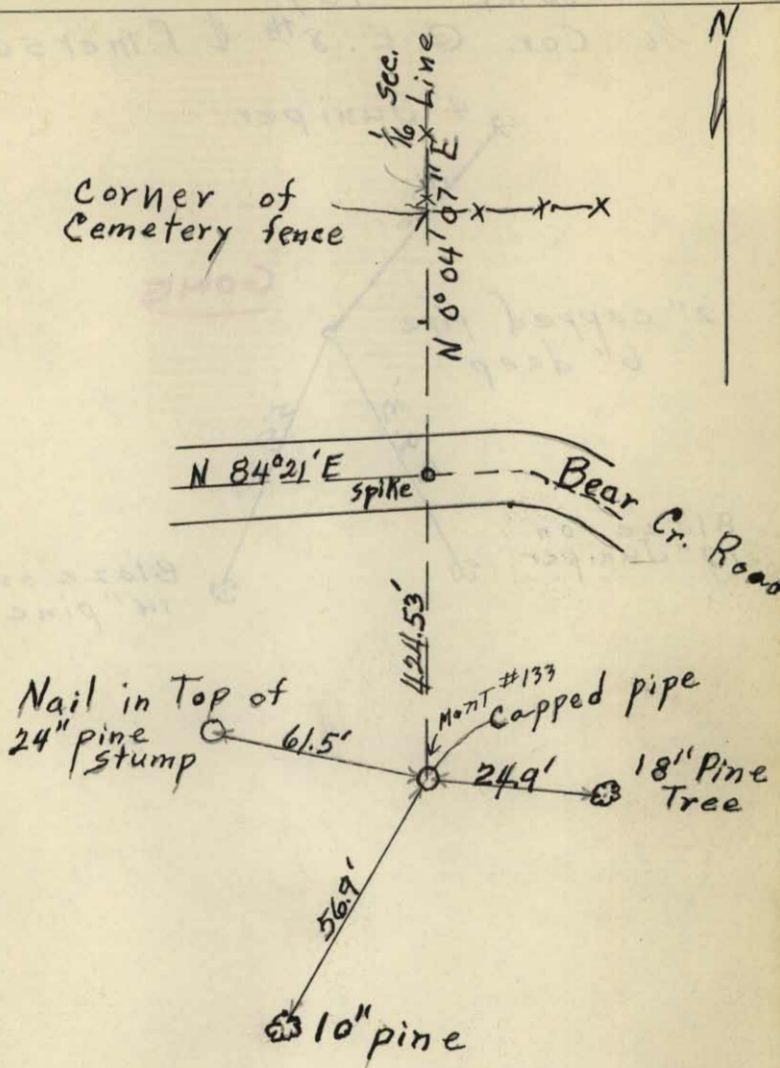 N
1/16 Sec.
Line
Corner of
Cemetery fence
N 0° 04' 07" E
N 84°21' E
spike
Bear Cr. Road
424.53'
Nail in Top of
24" pine
stump
61.5'
Mont #133
Capped pipe
24.9'
18" Pine
Tree
56.9'
10" pine
2" capped pipe
6" deep
GONE